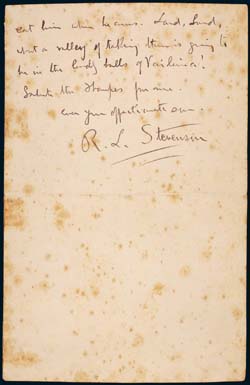 eat him when he comes. Lord, Lord,
what a volley of talking there is going to
be in the lordly halls of Vailima!
Salute the
ever your affectionate son.
R. L. Stevenson